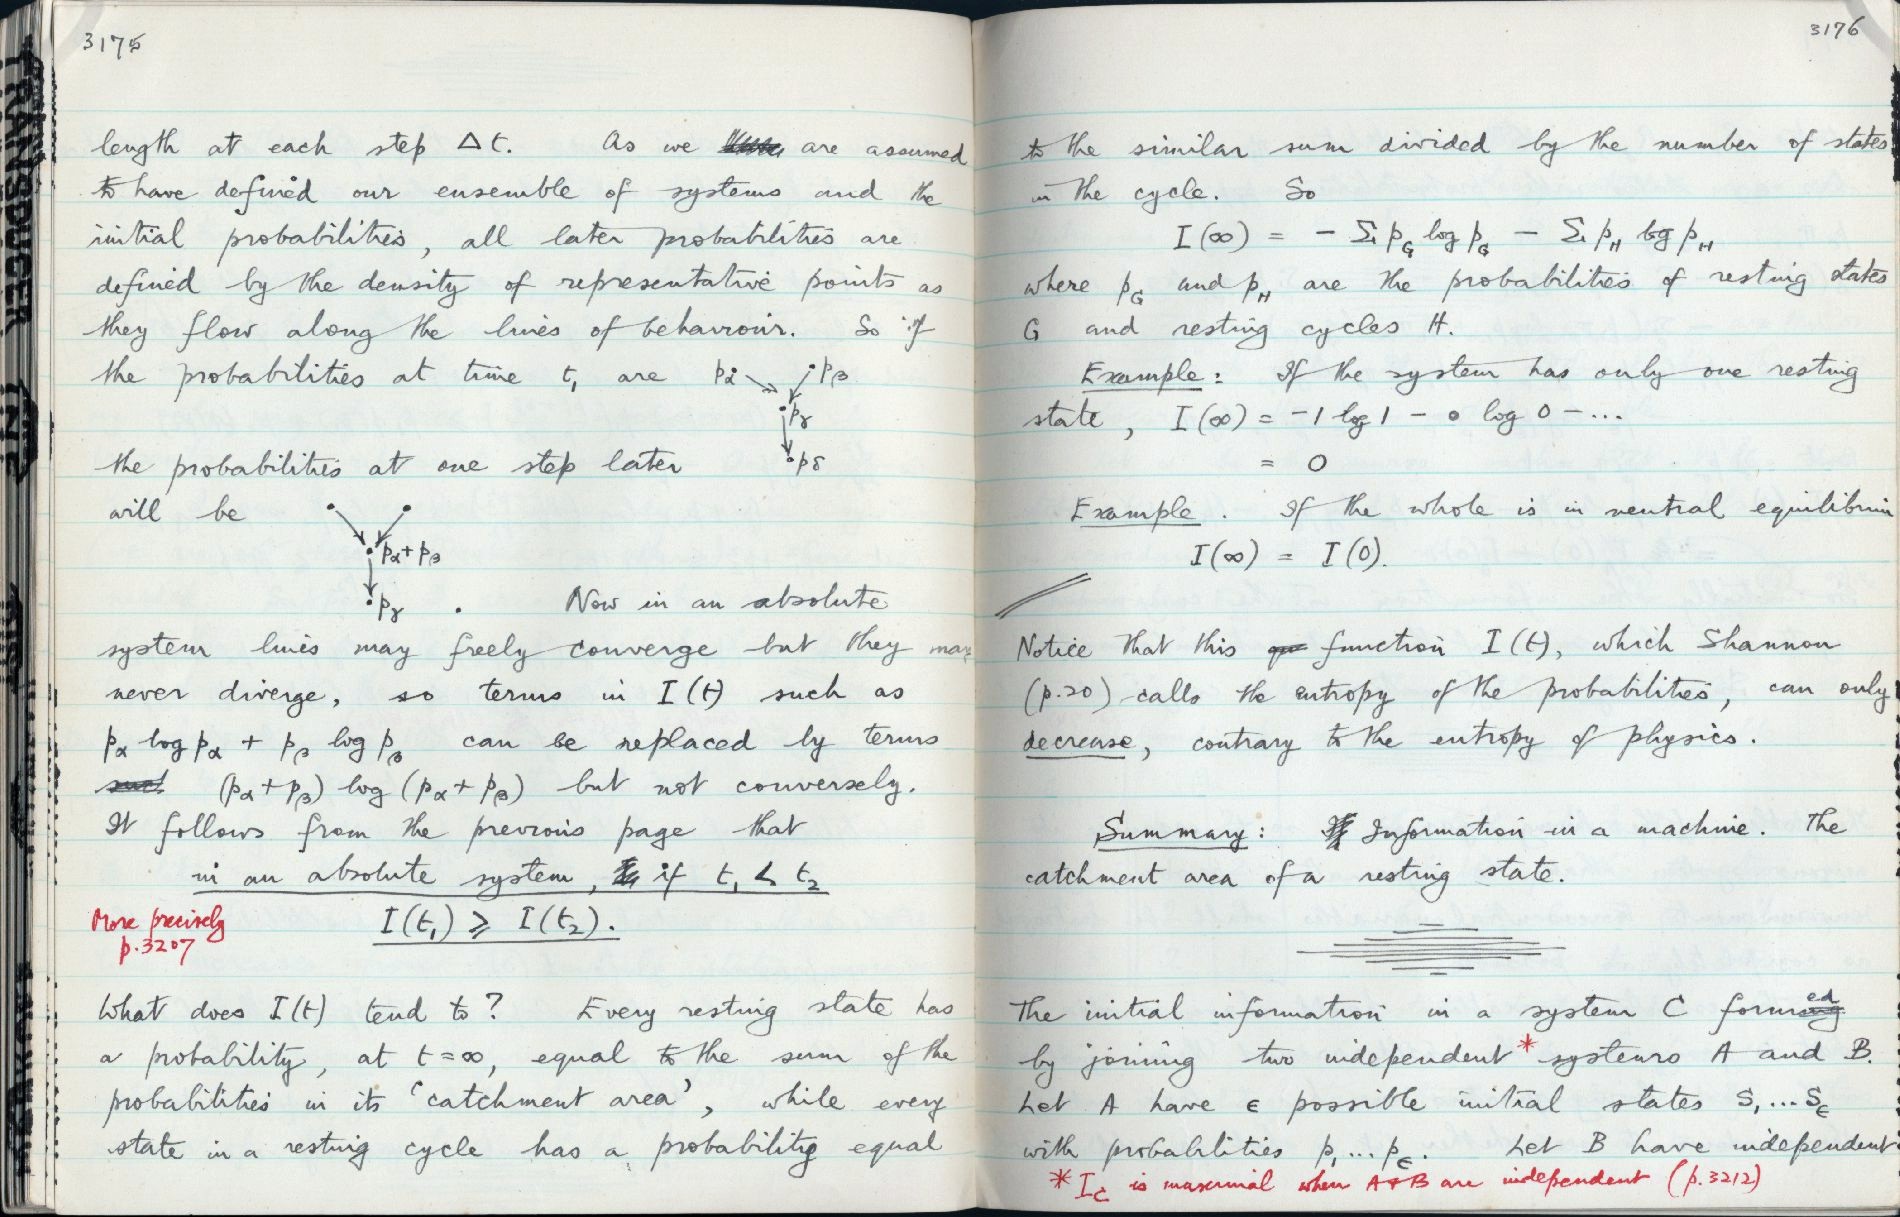 3175
length at each step Δt. As we are assumed
to have defined our ensemble of systems and the
initial probabilities, all later probabilities are
defined by the density of representative points as
they flow along the lines of behaviour. So if
the probabilities at time t₁ are pα pβ
pγ
the probabilities at one step later pδ
will be
pα+pβ
pγ . Now in an absolute
system lines may freely converge but they may
never diverge, so terms in I(t) such as
pα log pα + pβ log pβ can be replaced by terms
such (pα+pβ) log (pα+pβ) but not conversely.
It follows from the previous page that
in an absolute system, if t₁ < t₂
I(t₁) ⩾ I(t₂).
More precisely
p.3207
What does I(t) tend to? Every resting state has
a probability, at t=∞, equal to the sum of the
probabilities in its 'catchment area', while every
state in a resting cycle has a probability equal
3176
to the similar sum divided by the number of states
in the cycle. So
I(∞) = − Σ p_G log p_G − Σ p_H log p_H
where p_G and p_H are the probabilities of resting states
G and resting cycles H.
Example: If the system has only one resting
state, I(∞) = −1 log 1 − 0 log 0 − ...
= 0
Example. If the whole is in neutral equilibrium
I(∞) = I(0).
Notice that this function I(t), which Shannon
(p.20) calls the entropy of the probabilities, can only
decrease, contrary to the entropy of physics.
Summary: Information in a machine. The
catchment area of a resting state.
The initial information in a system C formed
by joining two independent* systems A and B.
Let A have ϵ possible initial states S₁...S_ϵ
with probabilities p₁...p_ϵ. Let B have independent
* I_C is maximal when A & B are independent (p.3212)